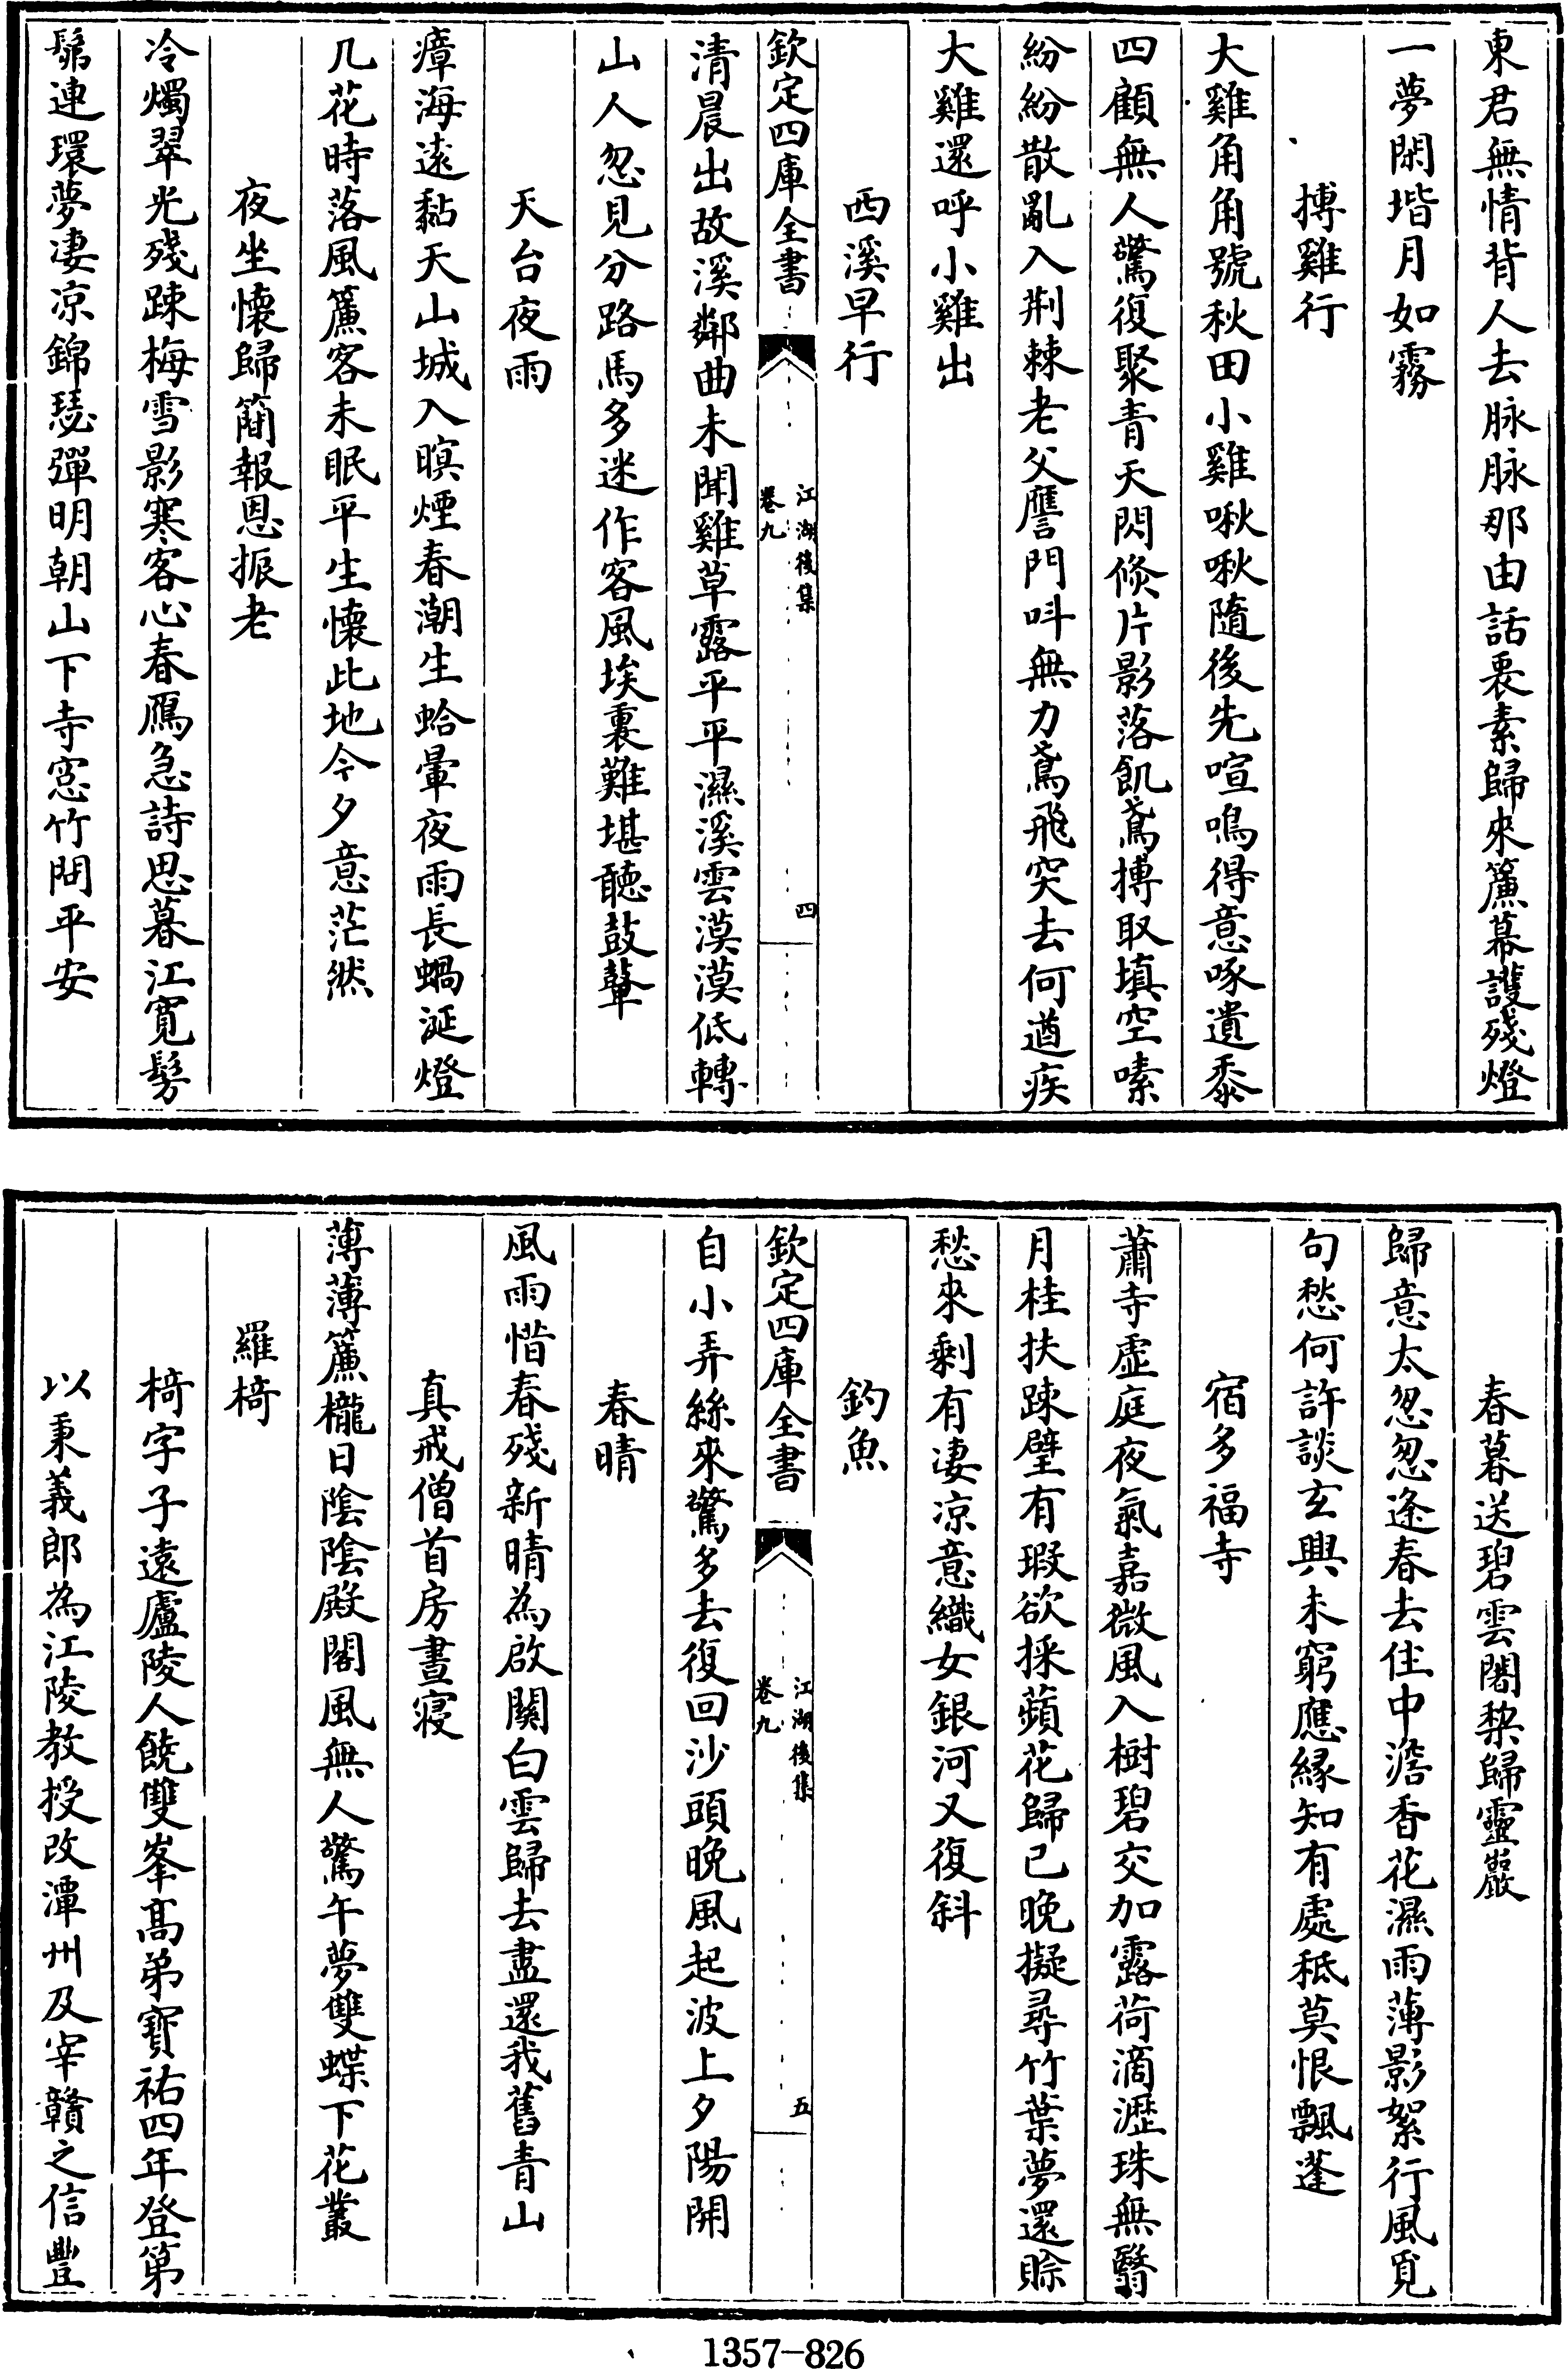 東君無情背人去脉脉那由話衷素歸來簾幕護殘燈
一夢閑堦月如霧
搏雞行
大雞角角號秋田小雞啾啾隨後先喧鳴得意啄遺黍
四顧無人驚復聚青天閃倐片影落飢鳶搏取填空嗉
紛紛散亂入荆棘老父譍門呌無力鳶飛突去何遒疾
大雞還呼小雞出
西溪早行
欽定四庫全書
江湖後集
卷九
四
清晨出故溪鄰曲未聞雞草露平平濕溪雲漠漠低轉
山人忽見分路馬多迷作客風埃裏難堪聽鼓鼙
天台夜雨
瘴海遠黏天山城入暝煙春潮生蛤暈夜雨長蝸涎燈
几花時落風簾客未眠平生懷此地今夕意茫然
夜坐懷歸簡報恩振老
冷燭翠光殘踈梅雪影寒客心春鴈急詩思暮江寛髣
髴連環夢凄凉錦瑟彈明朝山下寺窓竹問平安
春暮送碧雲闍棃歸靈巖
歸意太忽忽逢春去住中澹香花濕雨薄影絮行風覓
句愁何許談玄興未窮應縁知有處秪莫恨飄蓬
宿多福寺
蕭寺虚庭夜氣嘉微風入樹碧交加露荷滴瀝珠無翳
月桂扶踈壁有瑕欲採蘋花歸已晚擬尋竹葉夢還賒
愁來剩有凄凉意織女銀河又復斜
釣魚
欽定四庫全書
江湖後集
卷九
五
自小弄絲來驚多去復回沙頭晚風起波上夕陽開
春晴
風雨惜春殘新晴為啟關白雲歸去盡還我舊青山
真戒僧首房晝寢
薄薄簾櫳日陰陰殿閣風無人驚午夢雙蝶下花叢
羅椅
椅字子遠廬陵人饒雙峯髙弟寳祐四年登第
以秉義郎為江陵教授改潭州及宰贛之信豐
1357-826